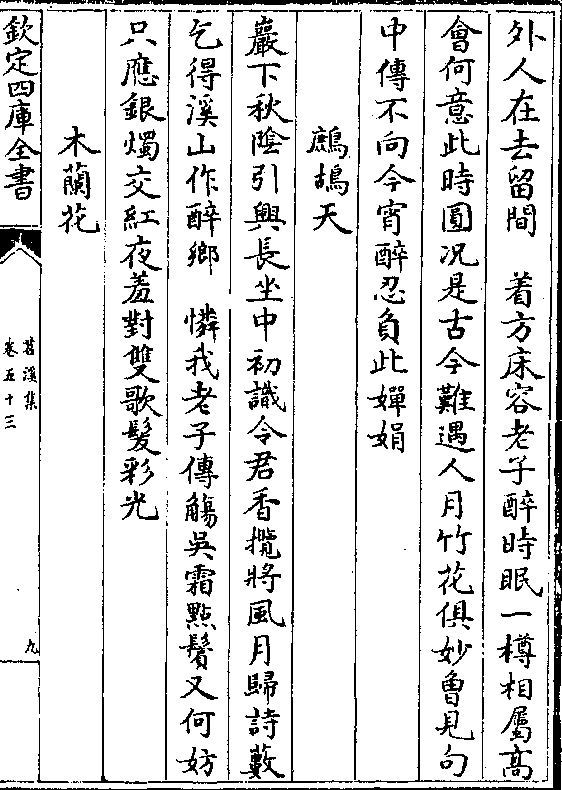 外人在去留間　着方床容老子醉時眠一樽相屬髙
會何意此時圓况是古今難遇人月竹花俱妙曾見句
中傳不向今宵醉忍負此嬋娟
鷓鴣天
巖下秋隂引興長坐中初識令君香攬將風月歸詩藪
乞得溪山作醉鄉　憐我老子傳觴吳霜㸃鬢又何妨
只應銀燭交紅夜羞對雙歌髮彩光
木蘭花
欽定四庫全書
苕溪集
卷五十三
九